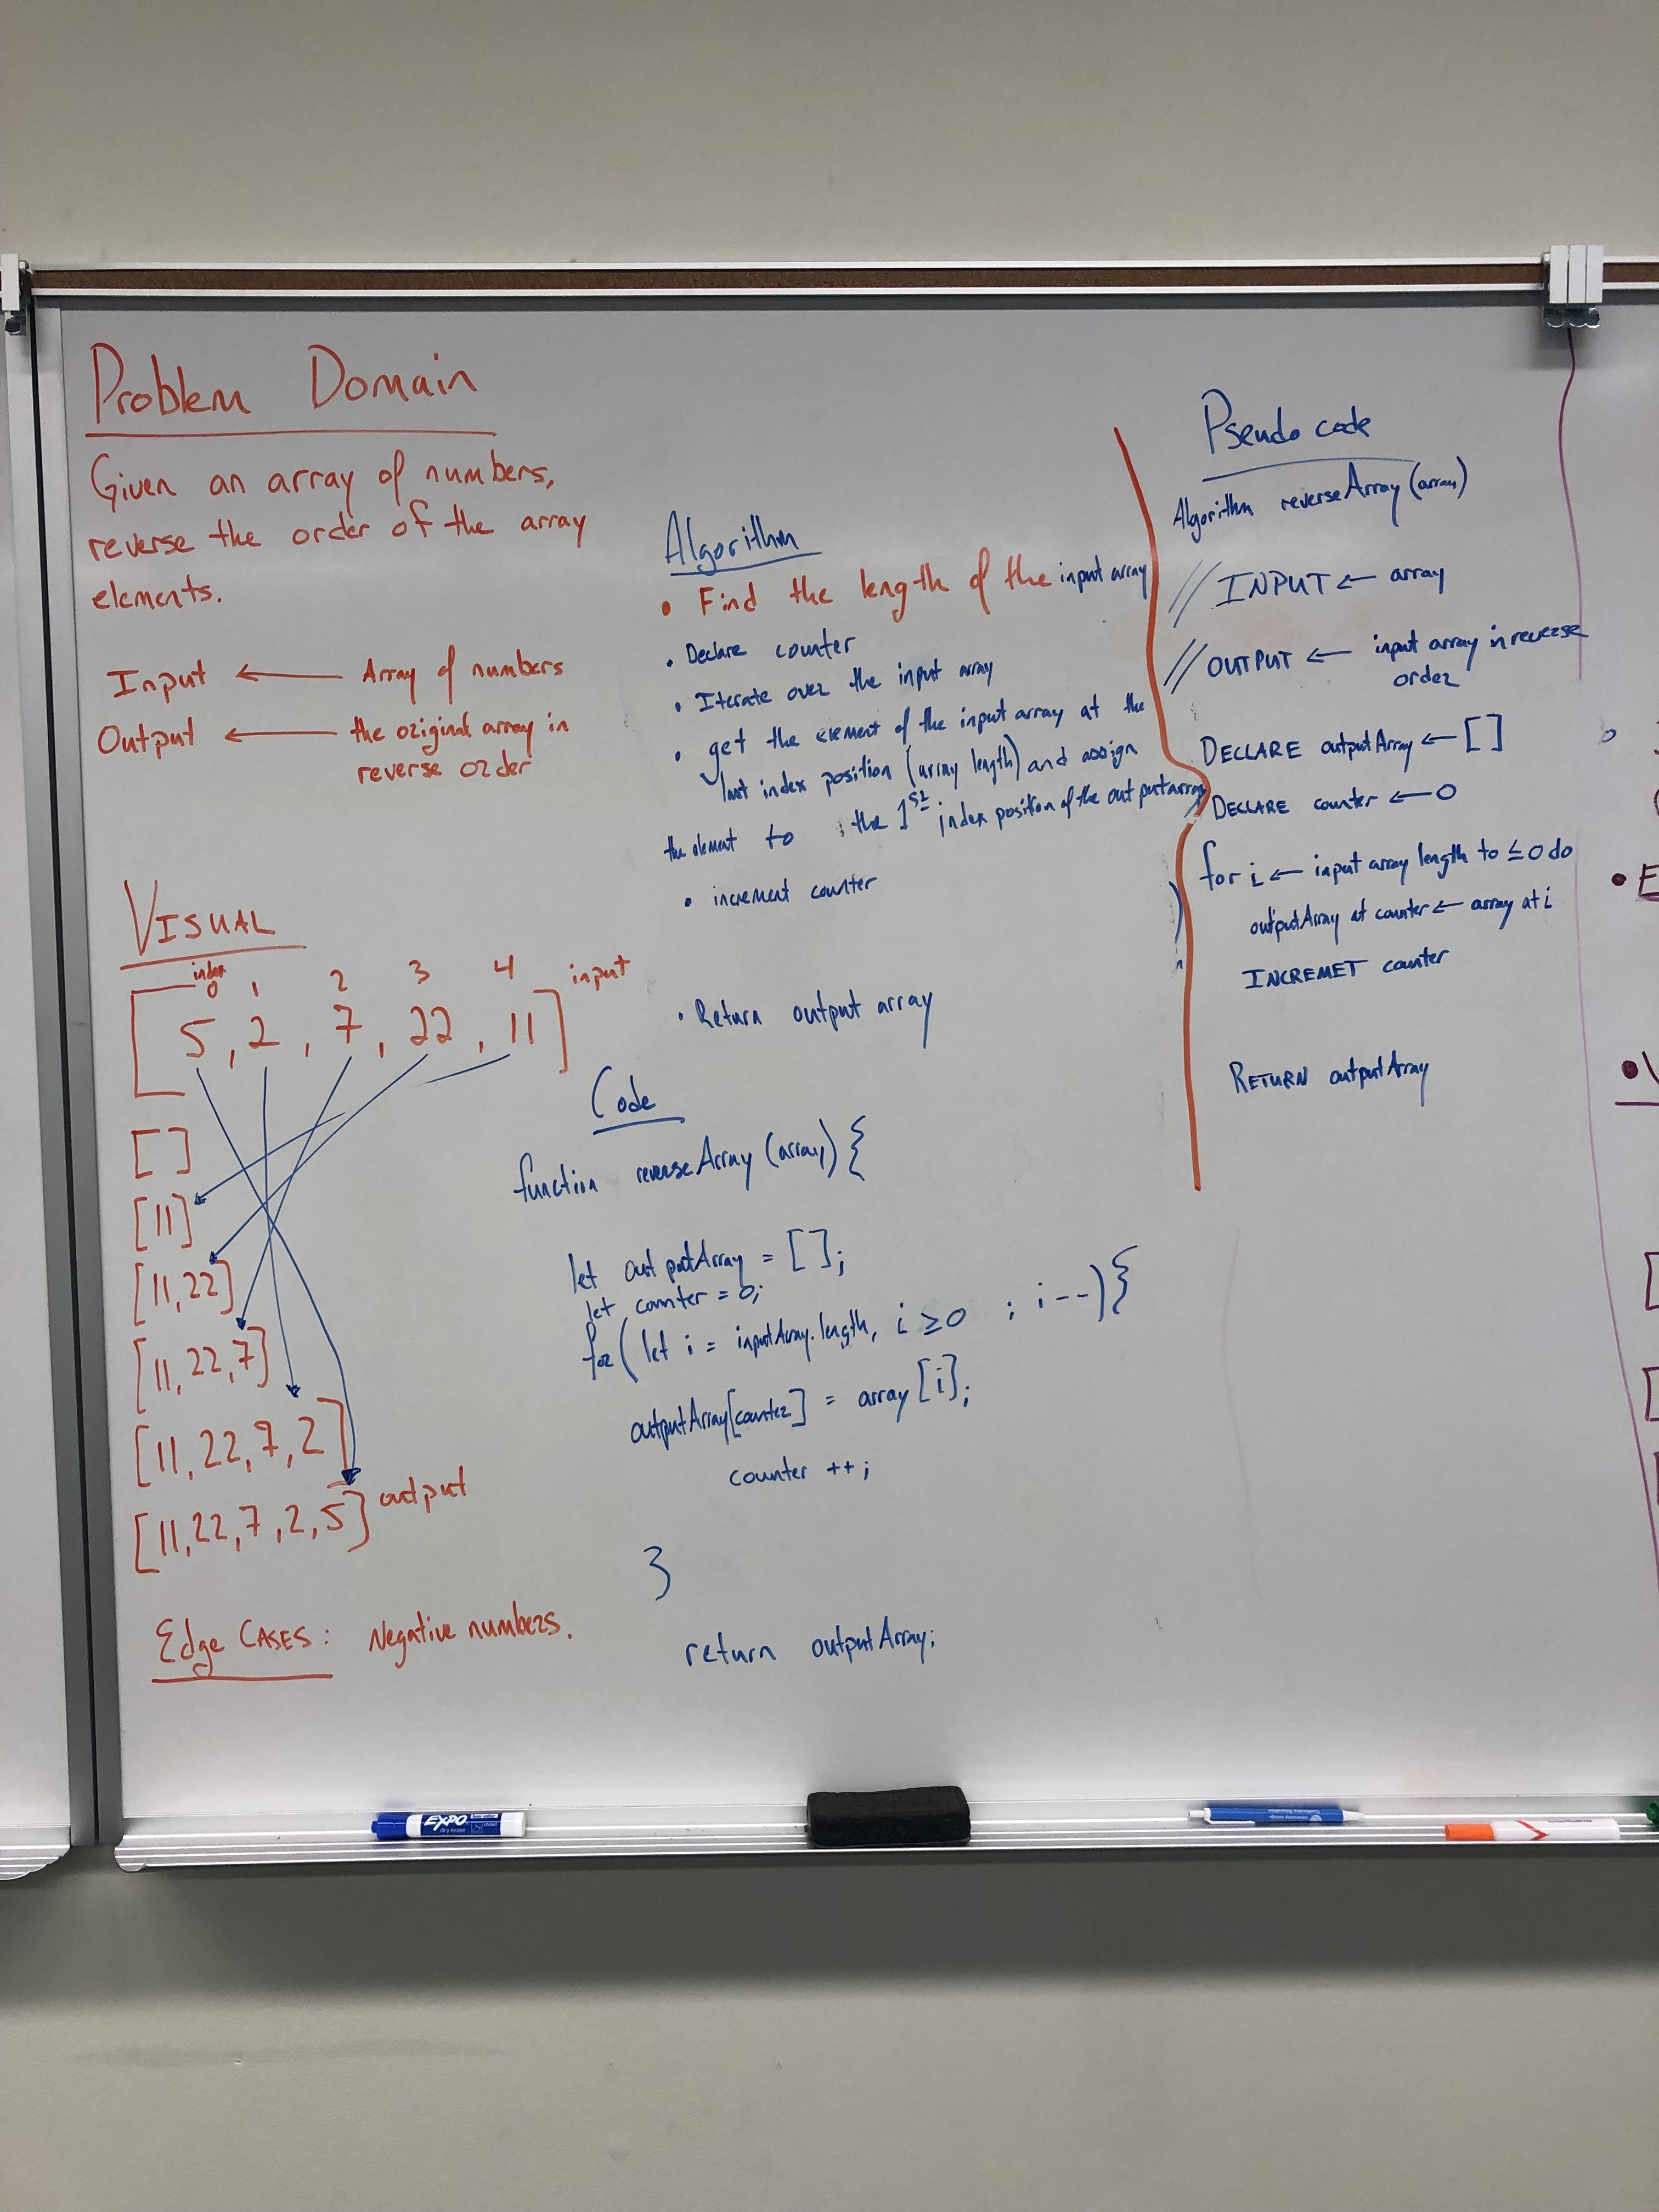 Problem Domain
Given an array of numbers,
reverse the order of the array
elements.
Input ← Array of numbers
Output ← the original array in
reverse order
VISUAL
index
0 1 2 3 4
[5, 2, 7, 22, 11] input
[]
[11]
[11,22]
[11,22,7]
[11,22,7,2]
[11,22,7,2,5] output
Edge CASES: Negative numbers.
Algorithm
• Find the length of the input array
• Declare counter
• Iterate over the input array
• get the element of the input array at the
last index position (array length) and assign
the element to the 1st index position of the output array
• increment counter
• Return output array
Code
function reverseArray (array) {
let outputArray = [];
let counter = 0;
for( let i = inputArray.length, i ≥ 0 ; i--) {
outputArray[counter] = array[i];
counter ++;
}
return outputArray;
Pseudo code
Algorithm reverseArray (array)
// INPUT ← array
// OUTPUT ← input array in reverse
order
DECLARE outputArray ← []
DECLARE counter ← 0
for i ← input array length to ≤ 0 do
outputArray at counter ← array at i
INCREMET counter
RETURN outputArray
• E
• V
EXPO
dry erase